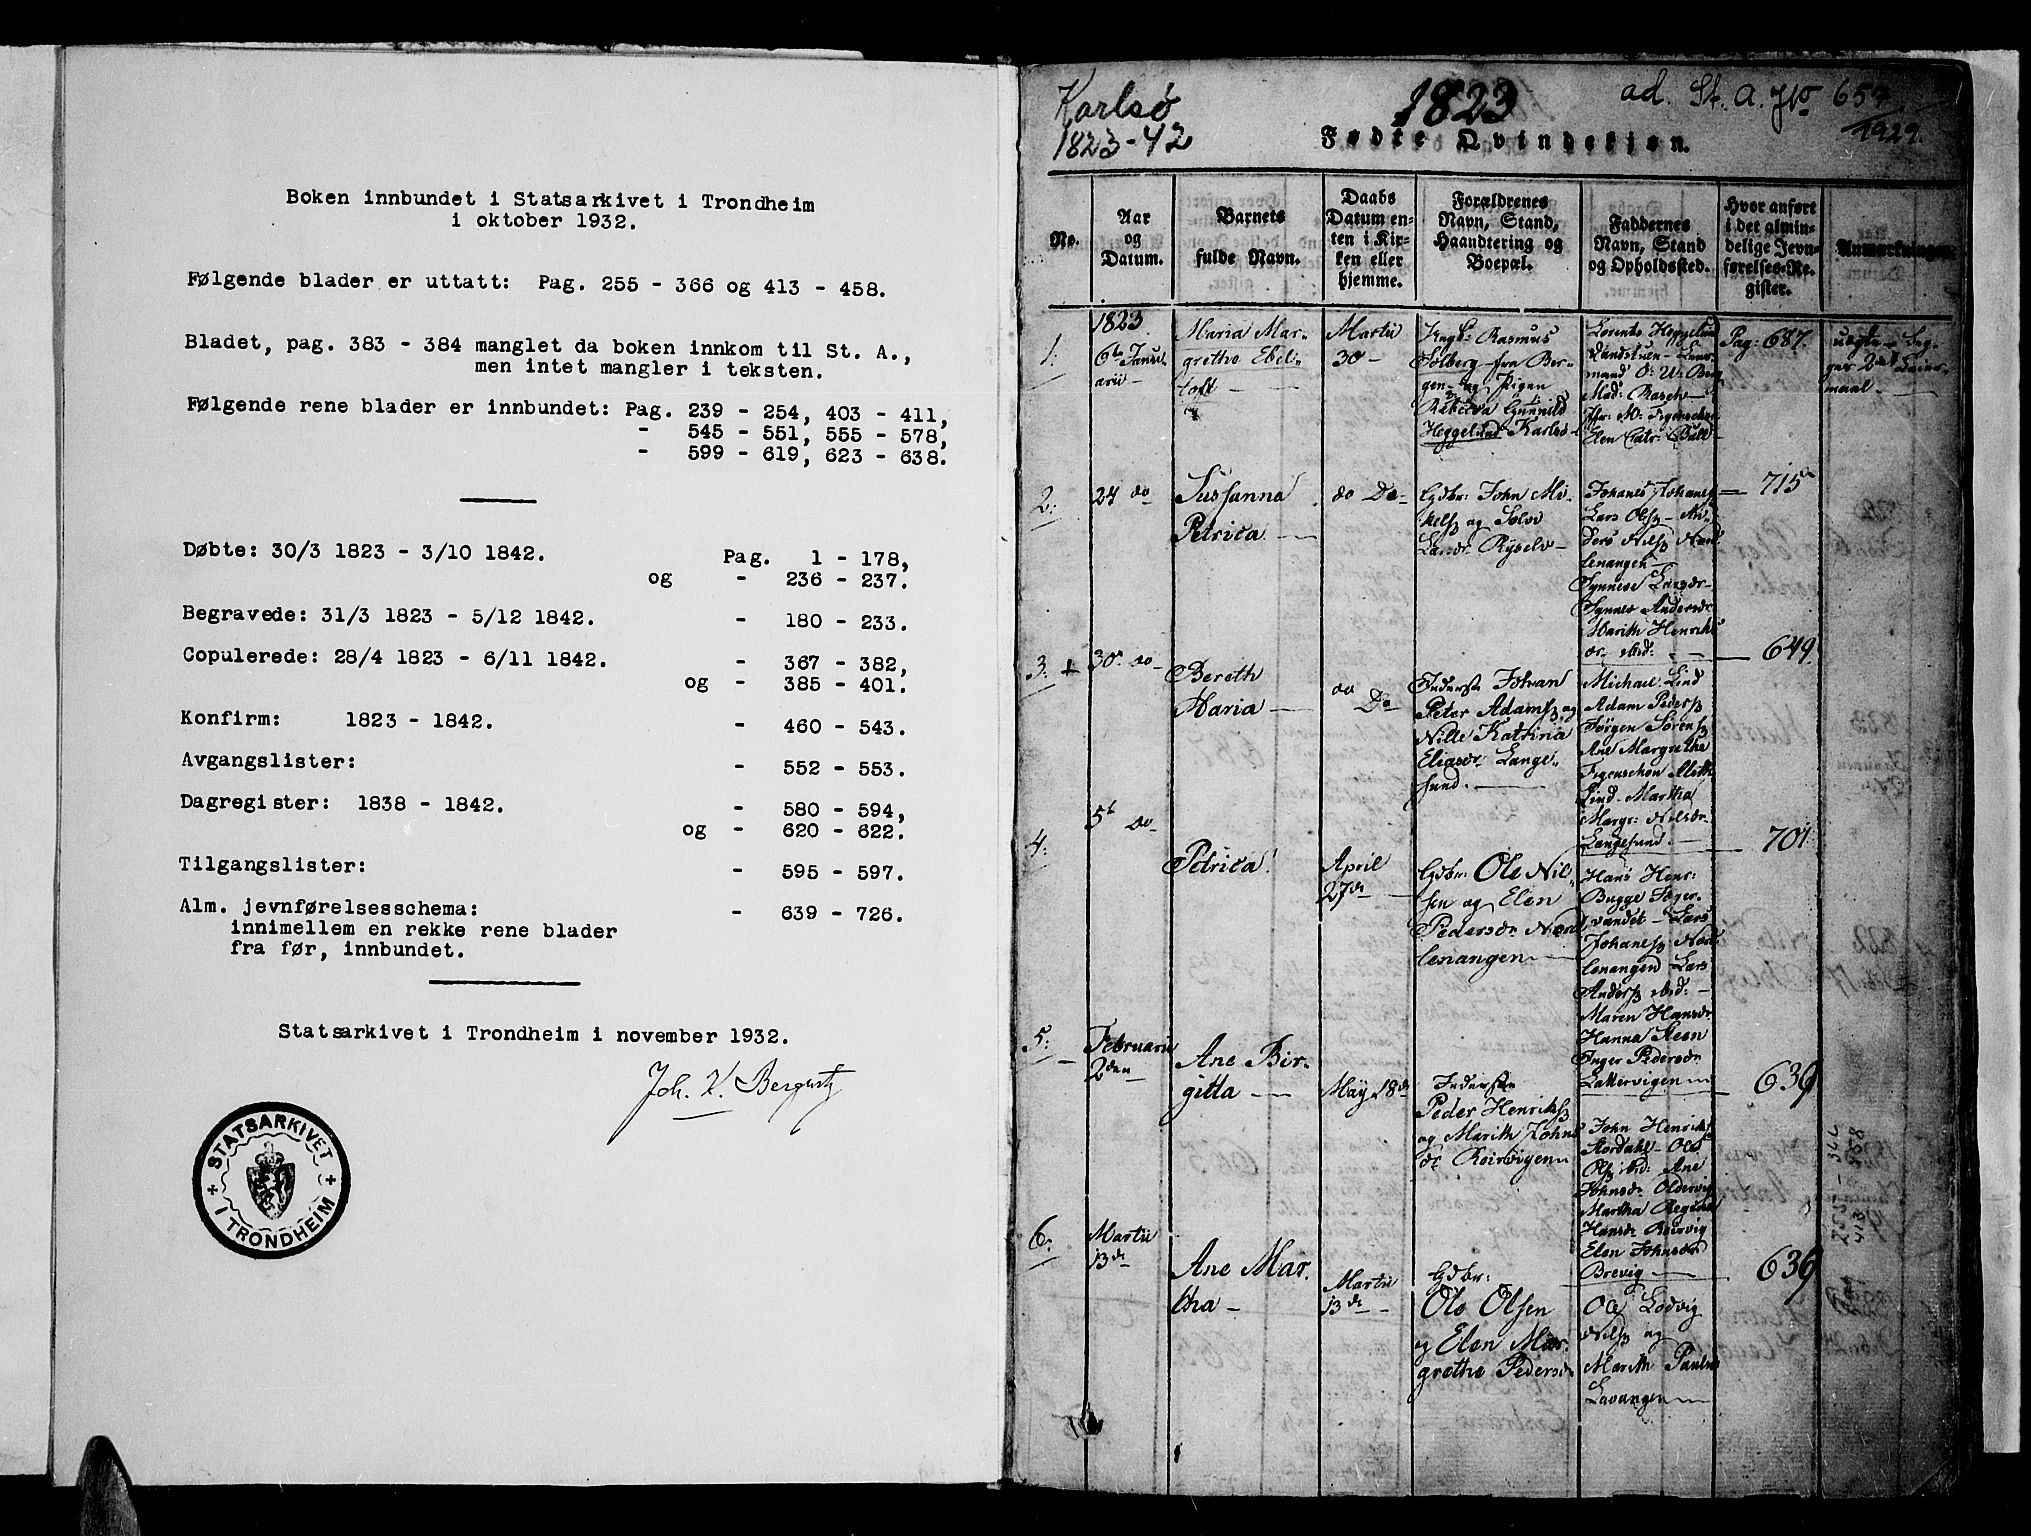 Boken innbundet i Statsarkivet i Trondheim
i oktober 1932.
Følgende blader er uttatt: Pag. 255 - 366 og 413 - 458.
Bladet, pag. 383 - 384 manglet da boken innkom til St. A.,
men intet mangler i teksten.
Følgende rene blader er innbundet: Pag. 239 - 254, 403 - 411,
- 545 - 551, 555 - 578,
- 599 - 619, 623 - 638.
Døbte: 30/3 1823 - 3/10 1842. Pag. 1 - 178,
og - 236 - 237.
Begravede: 31/3 1823 - 5/12 1842. - 180 - 233.
Copulerede: 28/4 1823 - 6/11 1842. - 367 - 382,
og - 385 - 401.
Konfirm: 1823 - 1842. - 460 - 543.
Avgangslister: - 552 - 553.
Dagregister: 1838 - 1842. - 580 - 594,
og - 620 - 622.
Tilgangslister: - 595 - 597.
Alm. jevnførelsesschema: - 639 - 726.
innimellem en rekke rene blader
fra før, innbundet.
Statsarkivet i Trondheim i november 1932.
STATSARKIVET
I TRONDHEIM
Karlsø
1823-42
1823
ad. St. a. Jno 657
1929.
Fødte Qvindekjøn.
No.
Aar
og
Datum.
Barnets
fulde Navn.
Daabs
Datum en-
ten i Kir-
ken eller
hjemme.
Forældrenes
Navn, Stand,
Haandtering og
Boepæl.
Faddernes
Navn, Stand
og Opholdssted.
Hvor anført
i det almin-
delige Jevn-
førelses-Re-
gister.
Anmærkninger.
1.
1823
6te Janu-
arii
Maria Mar-
grethe Ebel-
toft
Martii
30
Ungk: Rasmus
Solberg fra Ber-
gen og Pigen
Rebecca Gunnild
Heggelund Karlsø
Lorents Heggelund
Elen Catr: Bull
Pag: 687.
uægte
maal
2.
27 do
Sussanna
Petrica
do Do
Gdbr: John Mi-
kels og Solvi
Larsdr
Johanes Johanes
Lars Ols - An-
ders Nils Nord
Lenangen
Synneve Larsdr
Synnev Andersdr
Marith Henriks
dr ibid:
715
3.
30 do
Bereth
Maria
do Do
Inderst Johan
Peter Adams og
Nille Katrina
Eliasdr Lange-
sund.
Michael Lind
Adam Peders
Jørgen Sørens
Ane Margrethe
Figenschou
Lind - Martha
Margr: Nilsdr
Langesund
649
4.
5t do
Petrica
April
27de
Gdbr: Ole Nil-
sen og Elen
Pedersdr Nord
Lenangen
Hans Henr:
Bugge Jæger-
vandet - Lars
Johanes Nord
Lenangen Lars
Anders ibid:
Maren Hansdr
Hanna Steen
Inger Pedersdr
Lattervigen
701
5.
Februarii
2den
Ane Bir-
gitta
May 18de
Inderst
Peder Henriks
og Marith Johns
dr Reirvigen
John Henriks
Stordahl - Ole
Ols ibid: Ane
Johnsdr Oldervig
Martha
Hansdr Reirvig
Elen Johnsdr
Brevig
639
6.
Martii
13de
Ane Mar-
tha
Martii
13de
Gdbr:
Ole Olsen
og Elen Mar-
grethe Pedersdr
Ole Lodvig
Nils og
Marith Pauls
Lavangen
639
255 - 366
413 - 458